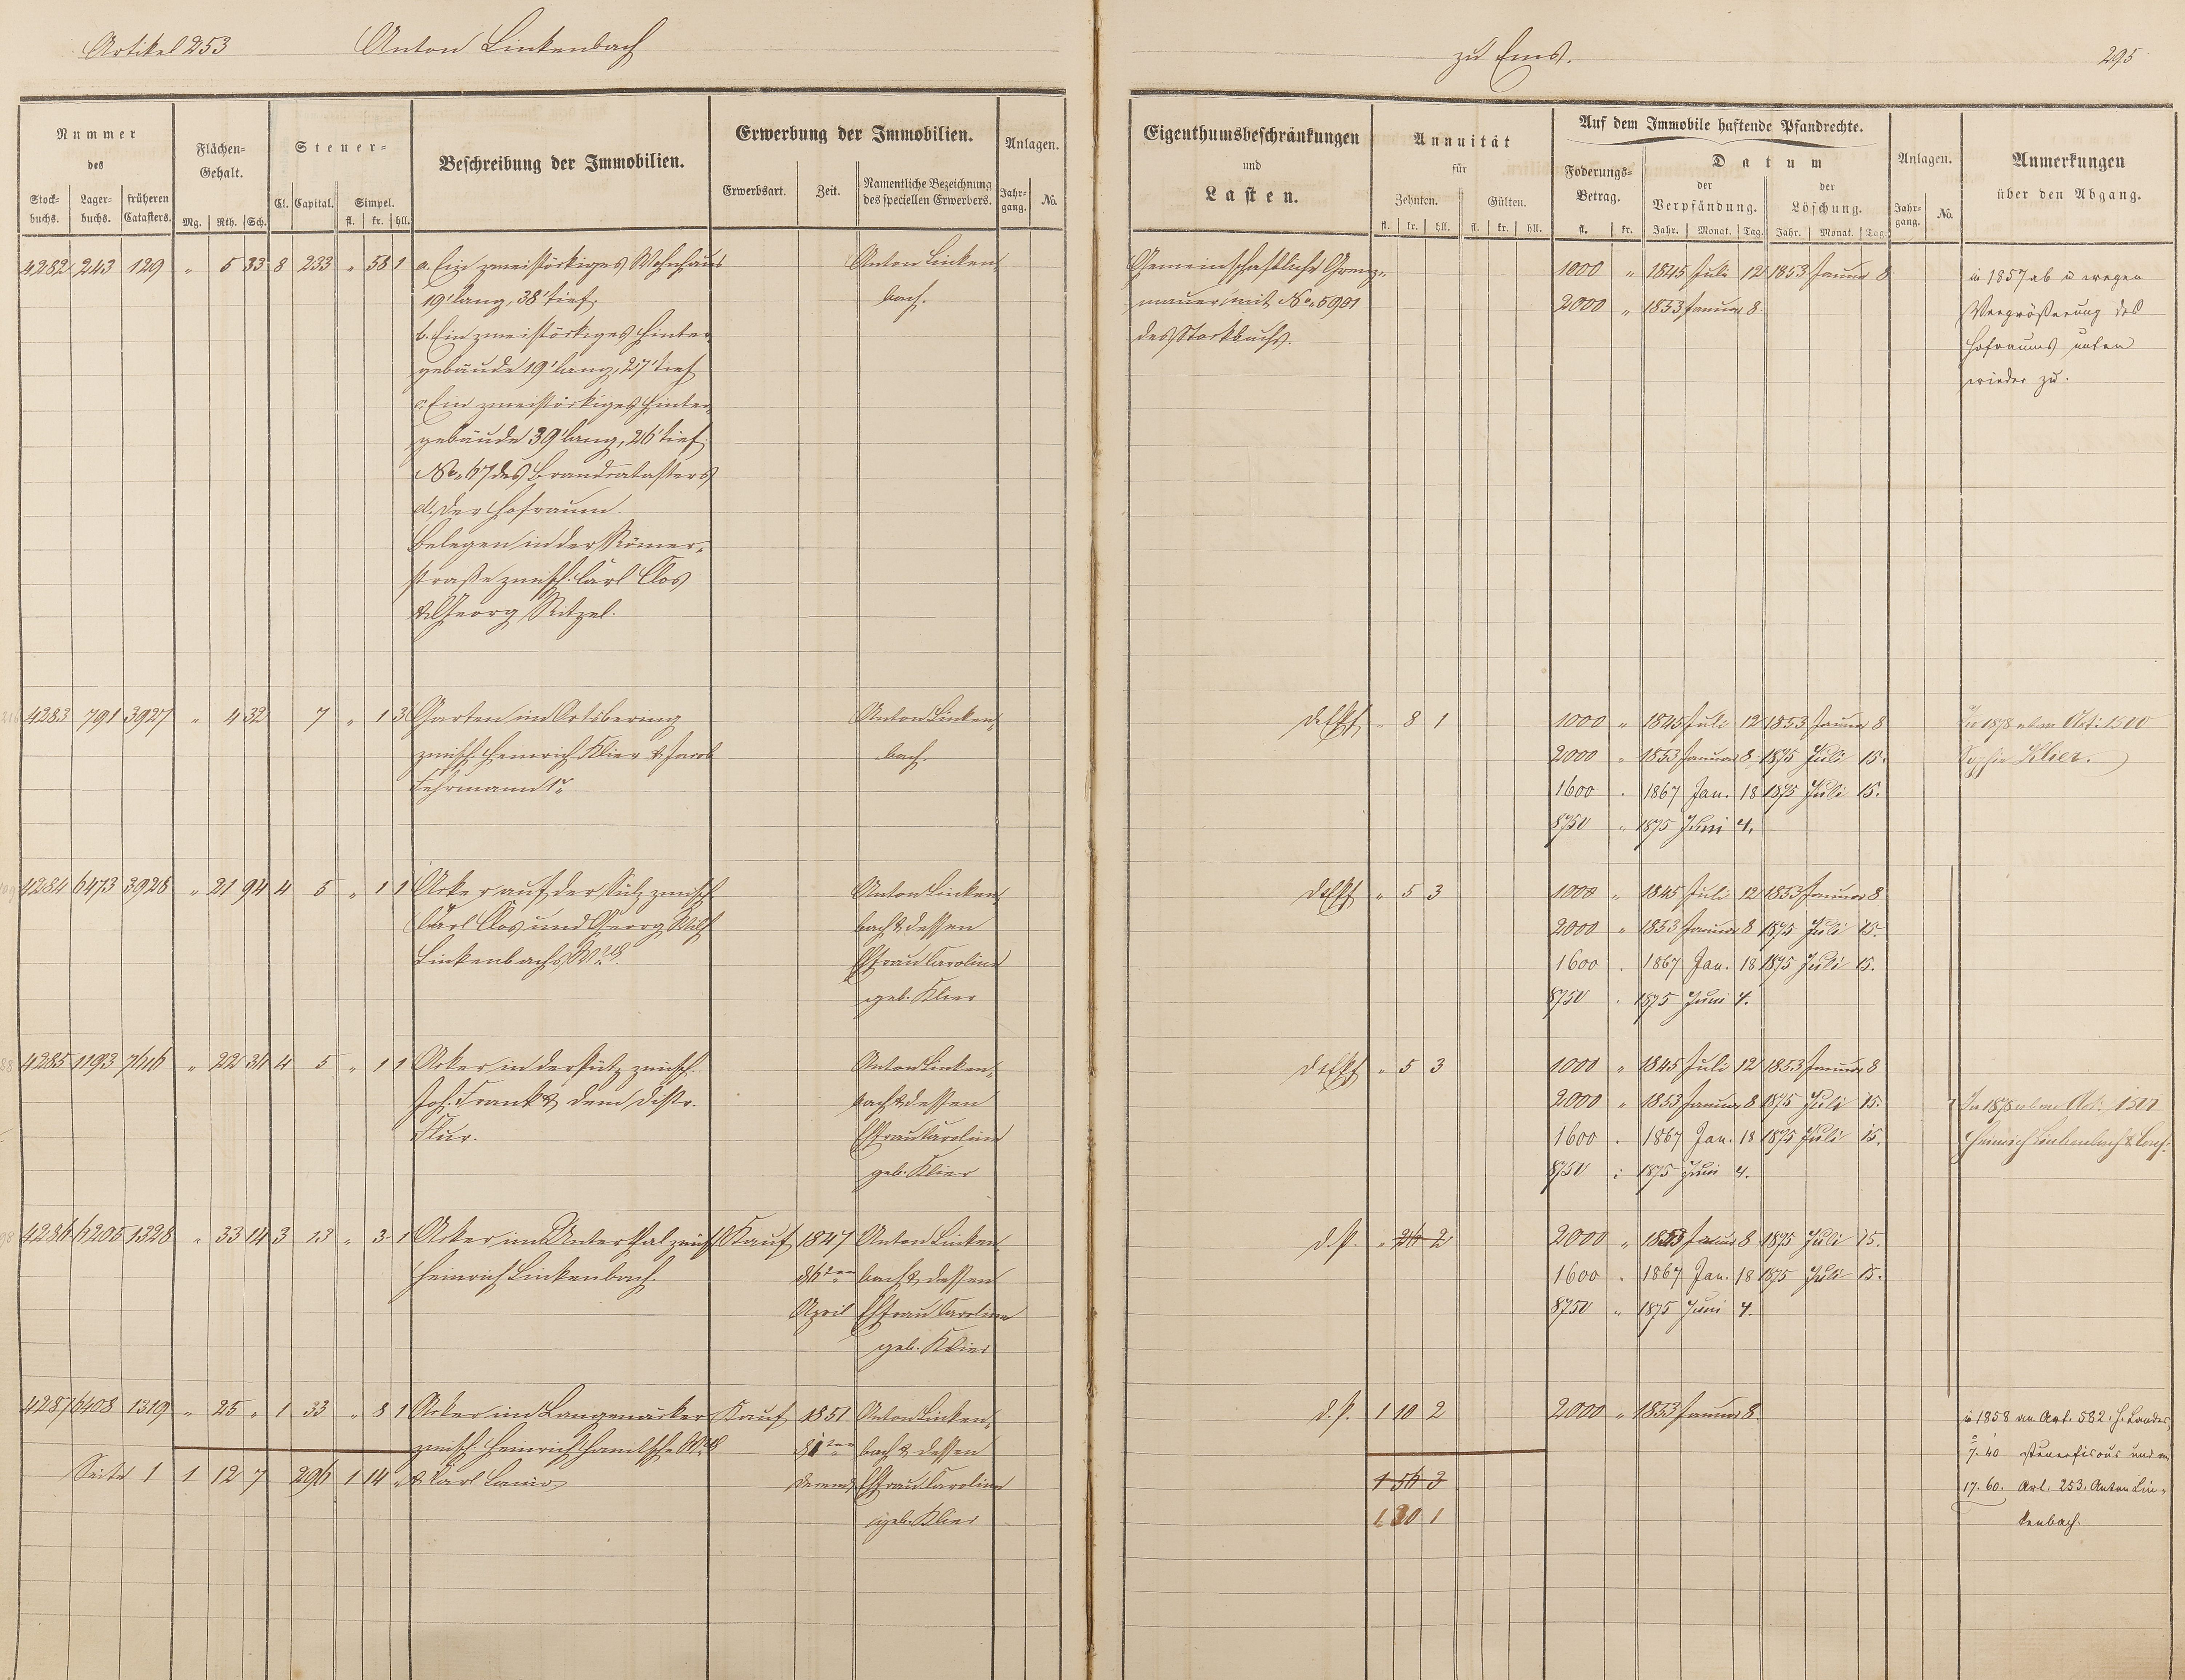 Artikel 253 Anton Linkenbach zu Ems. 295
Nummer des
Stock-buchs. Lager-buchs. früheren Catasters.
Flächen-Gehalt.
Mg. Rth. Sch.
Steuer-
Cl. Capital. Simpel.
fl. kr. hll.
Beschreibung der Immobilien.
Erwerbung der Immobilien.
Erwerbsart. Zeit. Namentliche Bezeichnung des speciellen Erwerbers.
Anlagen.
Jahr-gang. No.
Eigenthumsbeschränkungen
und
Lasten.
Annuität
für
Zehnten. Gülten.
fl. kr. hll. fl. kr. hll.
Auf dem Immobile haftende Pfandrechte.
Foderungs-Betrag.
fl. kr.
Datum
der Verpfändung. der Löschung.
Jahr. Monat. Tag. Jahr. Monat. Tag.
Anlagen.
Jahr-gang. No.
Anmerkungen
über den Abgang.
4282 243 129 " 5 33 8 233 " 58 1 a. Ein zweistöckiges Wohnhaus Anton Linken-
19' lang, 38' tief. bach.
b. Ein zweistöckiges Hinter-
gebäude 19' lang, 27' tief
c. Ein zweistöckiges Hinter-
gebäude 39' lang, 26' tief.
No. 67 des Brandcatasters
d. Der Hofraum.
Belegen in der Römer-
straße zwisch. Carl Clos
& Georg Ritzel.
Gemeinschaftliche Grenz- 1000 " 1845 Juli 12 1853 Januar 8
mauer mit No. 5901 2000 " 1853 Januar 8
des Stockbuchs.
in 1857 ab u wegen
Vergrößerung des
Hofraums unten
wieder zu.
4283 791 3927 " 4 32 7 " 1 3 Garten im Ortsbering Anton Linken-
zwisch. Heinrich Klier & Jacob bach.
Lehrmann 1r
" 8 1 1000 " 1845 Juli 12 1853 Januar 8
2000 " 1853 Januar 8 1875 Juli 15.
1600 . 1867 Jan. 18 1875 Juli 15.
8750 " 1875 Juni 4.
In 1878 Art: 1500
Sophie Klier.
4284 6473 3928 " 21 94 4 5 " 1 1 Acker auf der Sülz zwisch Anton Linken-
Carl Clos und Georg Wilh bach & dessen
Linkenbachs Ehfrau Caroline
geb. Klier
" 5 3 1000 " 1845 Juli 12 1853 Januar 8
2000 " 1853 Januar 8 1875 Juli 15.
1600 . 1867 Jan. 18 1875 Juli 15.
8750 . 1875 Juni 4.
4285 1193 7646 " 22 34 4 5 " 1 1 Acker in der Pütz zwisch. Anton Linken-
Joh. Frank & dem Distr. bach & dessen
Flur. Ehfrau Caroline
geb. Klier
" 5 3 1000 " 1845 Juli 12 1853 Januar 8
2000 " 1853 Januar 8 1875 Juli 15.
1600 . 1867 Jan. 18 1875 Juli 15.
8750 : 1875 Juni 4.
In 1878 Art:
Heinrich Linkenbach &
4286 6205 1328 " 33 14 3 13 " 3 1 Acker im Unterthal zwisch Kauf 1847 Anton Linken-
Heinrich Linkenbach. bach & dessen
April Ehfrau Caroline
geb. Klier
d. P. " 26 2 2000 " 1853 Januar 8 1875 Juli 15.
1600 . 1867 Jan. 18 1875 Juli 15.
8750 " 1875 Juni 4.
4287 6408 1319 " 25 " 1 33 " 8 1 Acker im Langenacker Kauf 1851 Anton Linken-
zwisch. Heinrich bach & dessen
& Carl Decemb. Ehfrau Caroline
geb. Klier
Seite 1 1 12 7 296 1 14 "
d. P. 1 10 2 2000 " 1853 Januar 8
1 56 3
1 30 1
in 1858 an Art. 582. H. Landes-
7. 40 steuerfiscus und an
17. 60. Art. 253. Anton Lin-
kenbach.